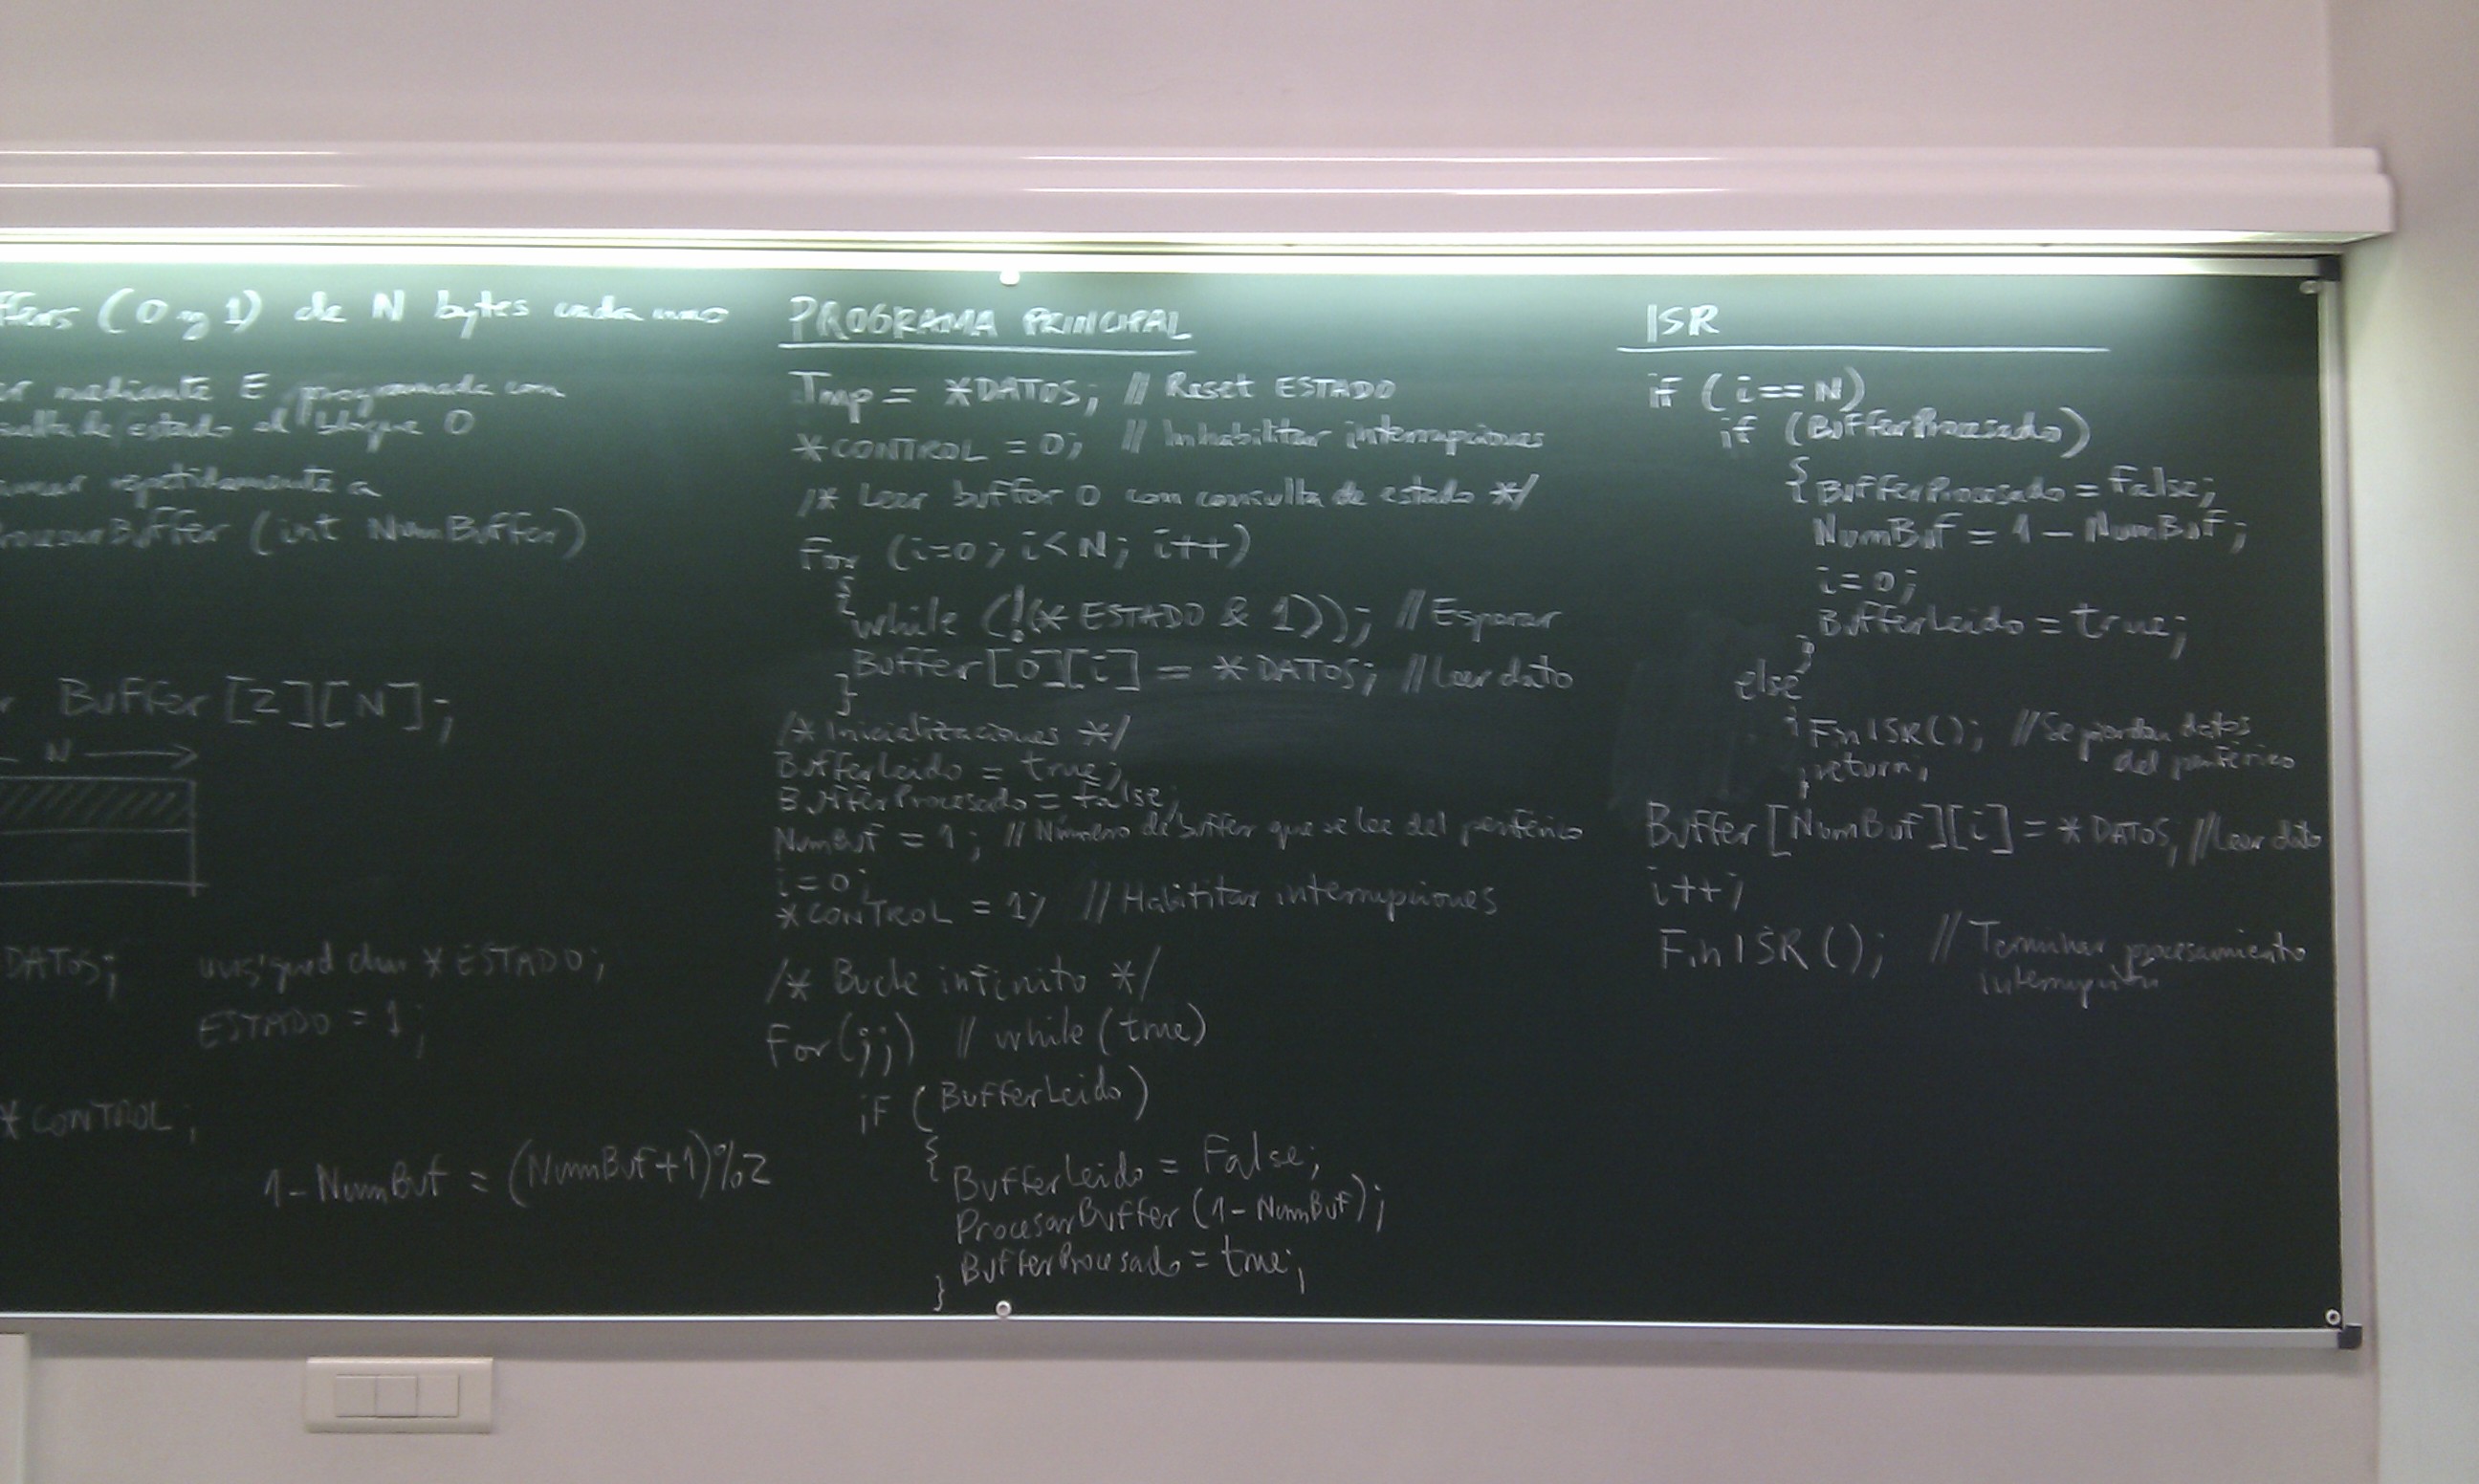 ffers (0 y 1) de N bytes cada uno
mediante E programada con
de estado el bloque 0
repetidamente a
ProcesarBuffer (int NumBuffer)
r Buffer [2][N];
N
DATOS; unsigned char *ESTADO;
ESTADO = 1;
*CONTROL;
1-NumBuf = (NumBuf+1)%2
PROGRAMA PRINCIPAL
Tmp = *DATOS; // Reset ESTADO
*CONTROL = 0; // Inhabilitar interrupciones
/* Leer buffer 0 con consulta de estado */
for (i=0; i<N; i++)
{
while (!(*ESTADO & 1)); // Esperar
Buffer[0][i] = *DATOS; // Leer dato
}
/* Inicializaciones */
BufferLeido = true;
BufferProcesado = false;
NumBuf = 1; // Número de buffer que se lee del periférico
i=0;
*CONTROL = 1; // Habititar interrupciones
/* Bucle infinito */
For(;;) // while (true)
if (BufferLeido)
{
BufferLeido = False;
ProcesarBuffer (1-NumBuf);
BufferProcesado = true;
}
ISR
if (i==N)
if (BufferProcesado)
{ BufferProcesado = false;
NumBuf = 1 - NumBuf;
i=0;
BufferLeido = true;
}
else
{ FinISR(); // Se pierden datos
del periférico
return;
}
Buffer [NumBuf][i] = *DATOS; // Leer dato
i++;
FinISR(); // Terminar procesamiento
interrupción